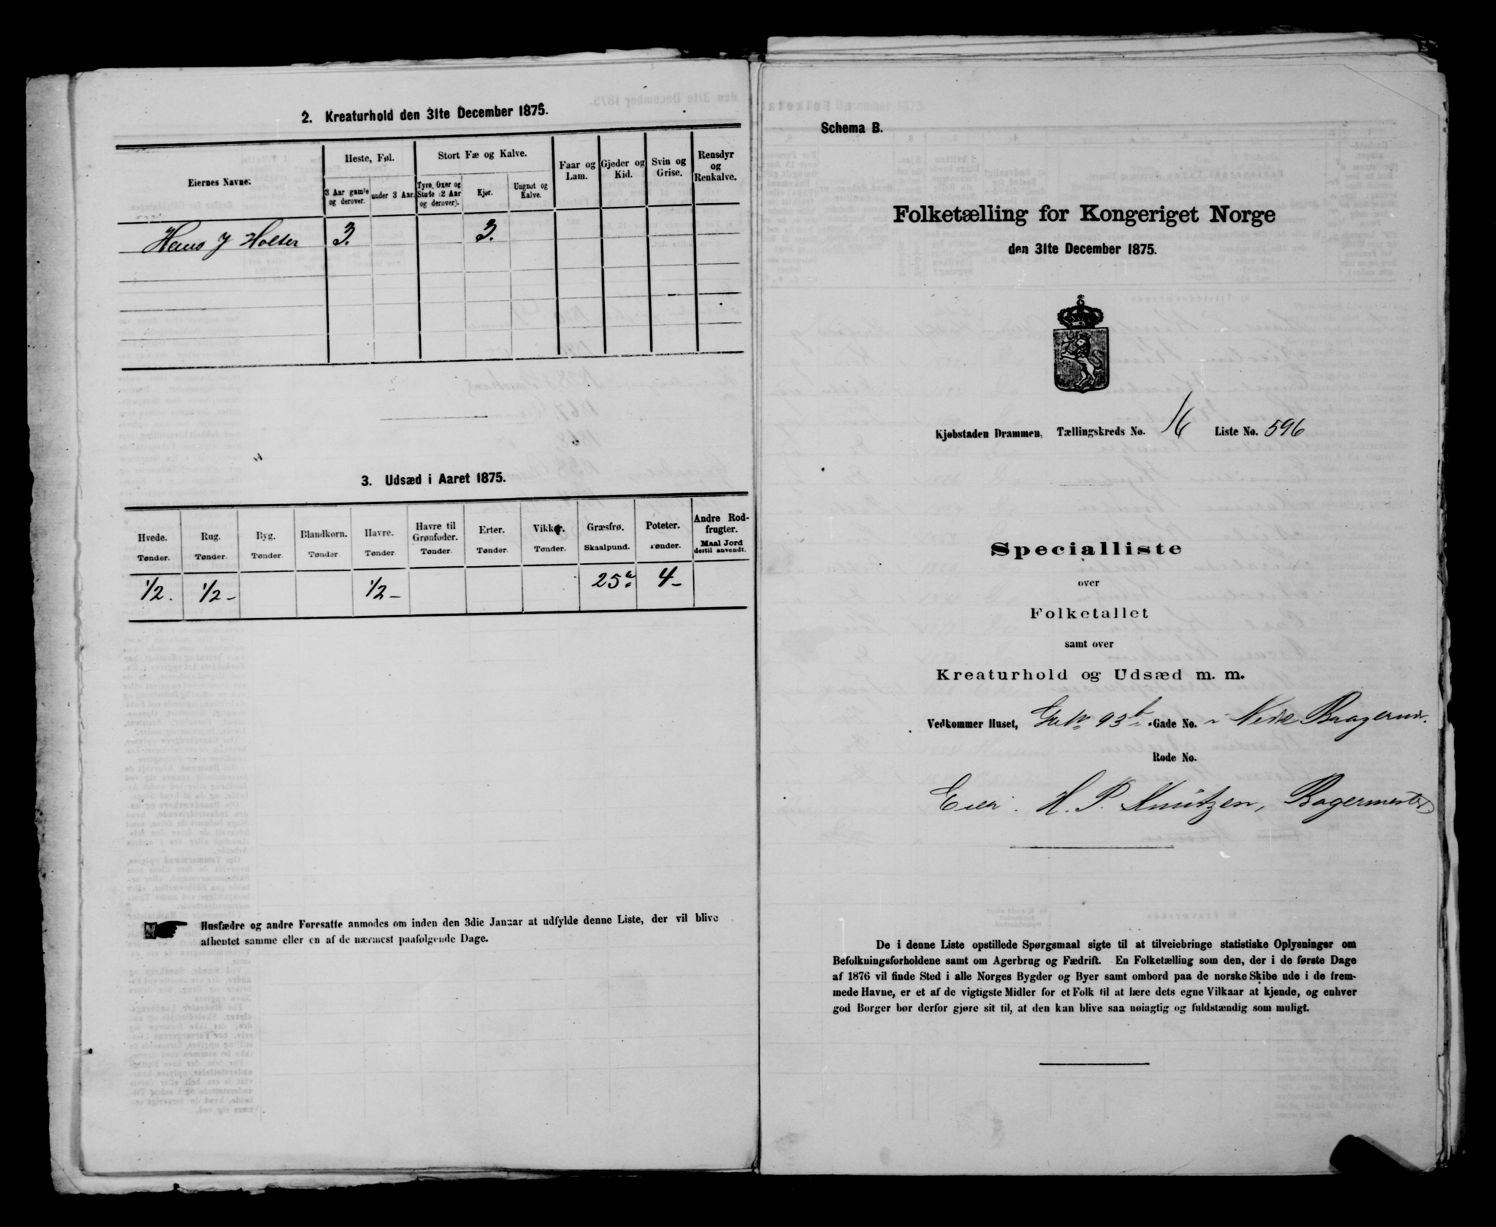 2. Kreaturhold den 31te December 1875.
Eiernes Navne.
Heste, Føl.
3 Aar gamle og derover.
under 3 Aar.
Stort Fæ og Kalve.
Tyre, Oxer og Stude (2 Aar og derover).
Kjør.
Ungnøt og Kalve.
Faar og Lam.
Gjeder og Kid.
Svin og Grise.
Rensdyr og Renkalve.
Hans J Holter 3. 3.
3. Udsæd i Aaret 1875.
Hvede. Rug. Byg. Blandkorn. Havre. Havre til Grønfoder. Erter. Vikker. Græsfrø. Poteter. Andre Rodfrugter.
Tønder. Tønder. Tønder. Tønder. Tønder. Tønder. Tønder. Tønder. Skaalpund. Tønder. Maal Jord dertil anvendt.
1/2. 1/2 – 1/2 – 25 4 –
Husfædre og andre Foresatte anmodes om inden den 3die Januar at udfylde denne Liste, der vil blive
afhentet samme eller en af de nærmest paafølgende Dage.
Schema B.
Folketælling for Kongeriget Norge
den 31te December 1875.
Kjøbstaden Drammen, Tællingskreds No. 16 Liste No. 596
Specialliste
over
Folketallet
samt over
Kreaturhold og Udsæd m. m.
Vedkommer Huset, 93b Gade No. i Nedre Bragernes.
Rode No.
Eier. H. P. Knutzen, Bagermester
De i denne Liste opstillede Spørgsmaal sigte til at tilveiebringe statistiske Oplysninger om
Befolkningsforholdene samt om Agerbrug og Fædrift. En Folketælling som den, der i de første Dage
af 1876 vil finde Sted i alle Norges Bygder og Byer samt ombord paa de norske Skibe ude i de frem-
mede Havne, er et af de vigtigste Midler for et Folk til at lære dets egne Vilkaar at kjende, og enhver
god Borger bør derfor gjøre sit til, at den kan blive saa nøiagtig og fuldstændig som muligt.